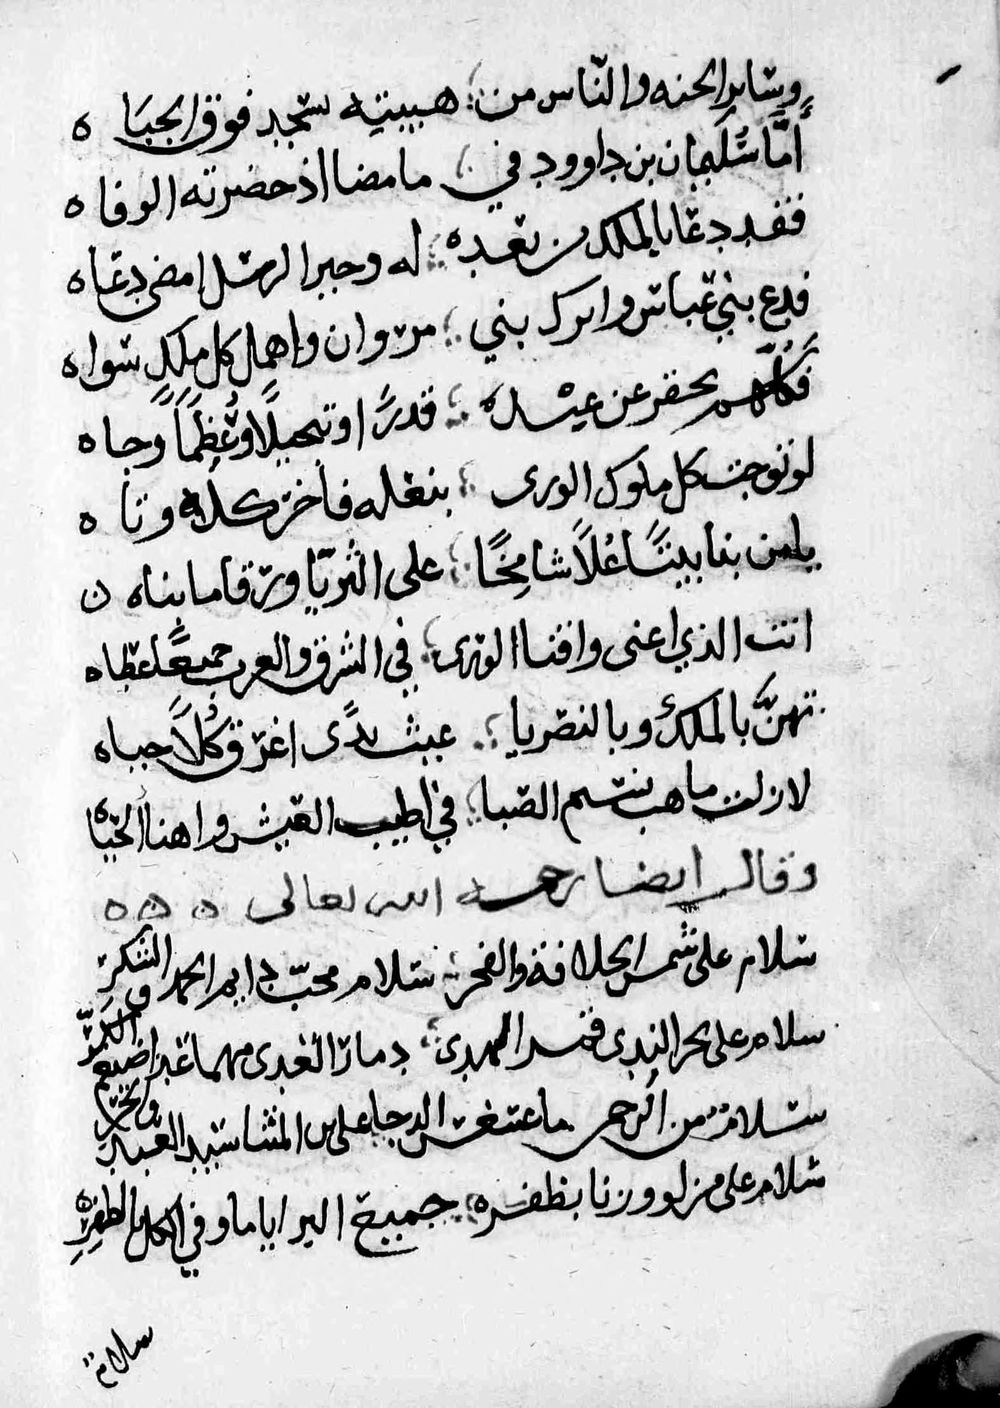 وساير الجنه والناس من هيبته تسجد فوق الجباه
أما سليمان بن داوود في ما مضا اذ حضرته الوفاه
فقد دعا بالملك من بعده له وخير الرسل امضى دعاه
فدع بني عباس واترك بني مروان واهمل كل ملك سواه
فكلهم يحقر عن عبده قدرًا وتبجيلًا وعظمًا وجاه
لو توجت كل ملوك الورى بنعله فاخرت كلا وتاه
يا من بنا بيتًا علًا شامخًا على الثريا ورقا ما بناه
انت الذي اغنى واقنا الورى في الشرق والغرب جميعًا عطاه
تهنّ بالملك وبالنصر يا غيث ندًى اغرق كلًا حباه
لا زلت ما هب نسيم الصبا في اطيب العيش واهنا الحياه
وقال ايضا رحمه الله تعالى
سلام على شمس الخلافة والفخر سلام محب دايم الحمد والشكر
سلام على بحر الندى قمر الهدى دمار العدى مهما غدا ضيغم الكر
سلام من الرحمن ما عسعس الدجا على بن المثنا سيد العبد والحر
سلام على من لو وزنا بظفره جميع البرايا ما وفي الكل بالظفر
سلام